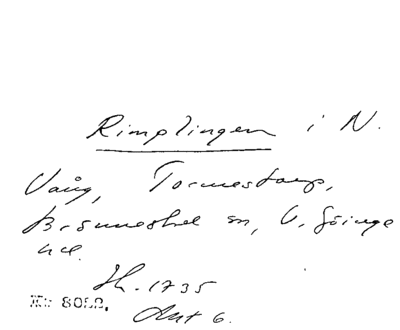 Rimplingen i N.
Vång, Tormestorp,
Brönnestad sn, V. Göinge
hd.
Sk. 1735
8082.
Ant 6.